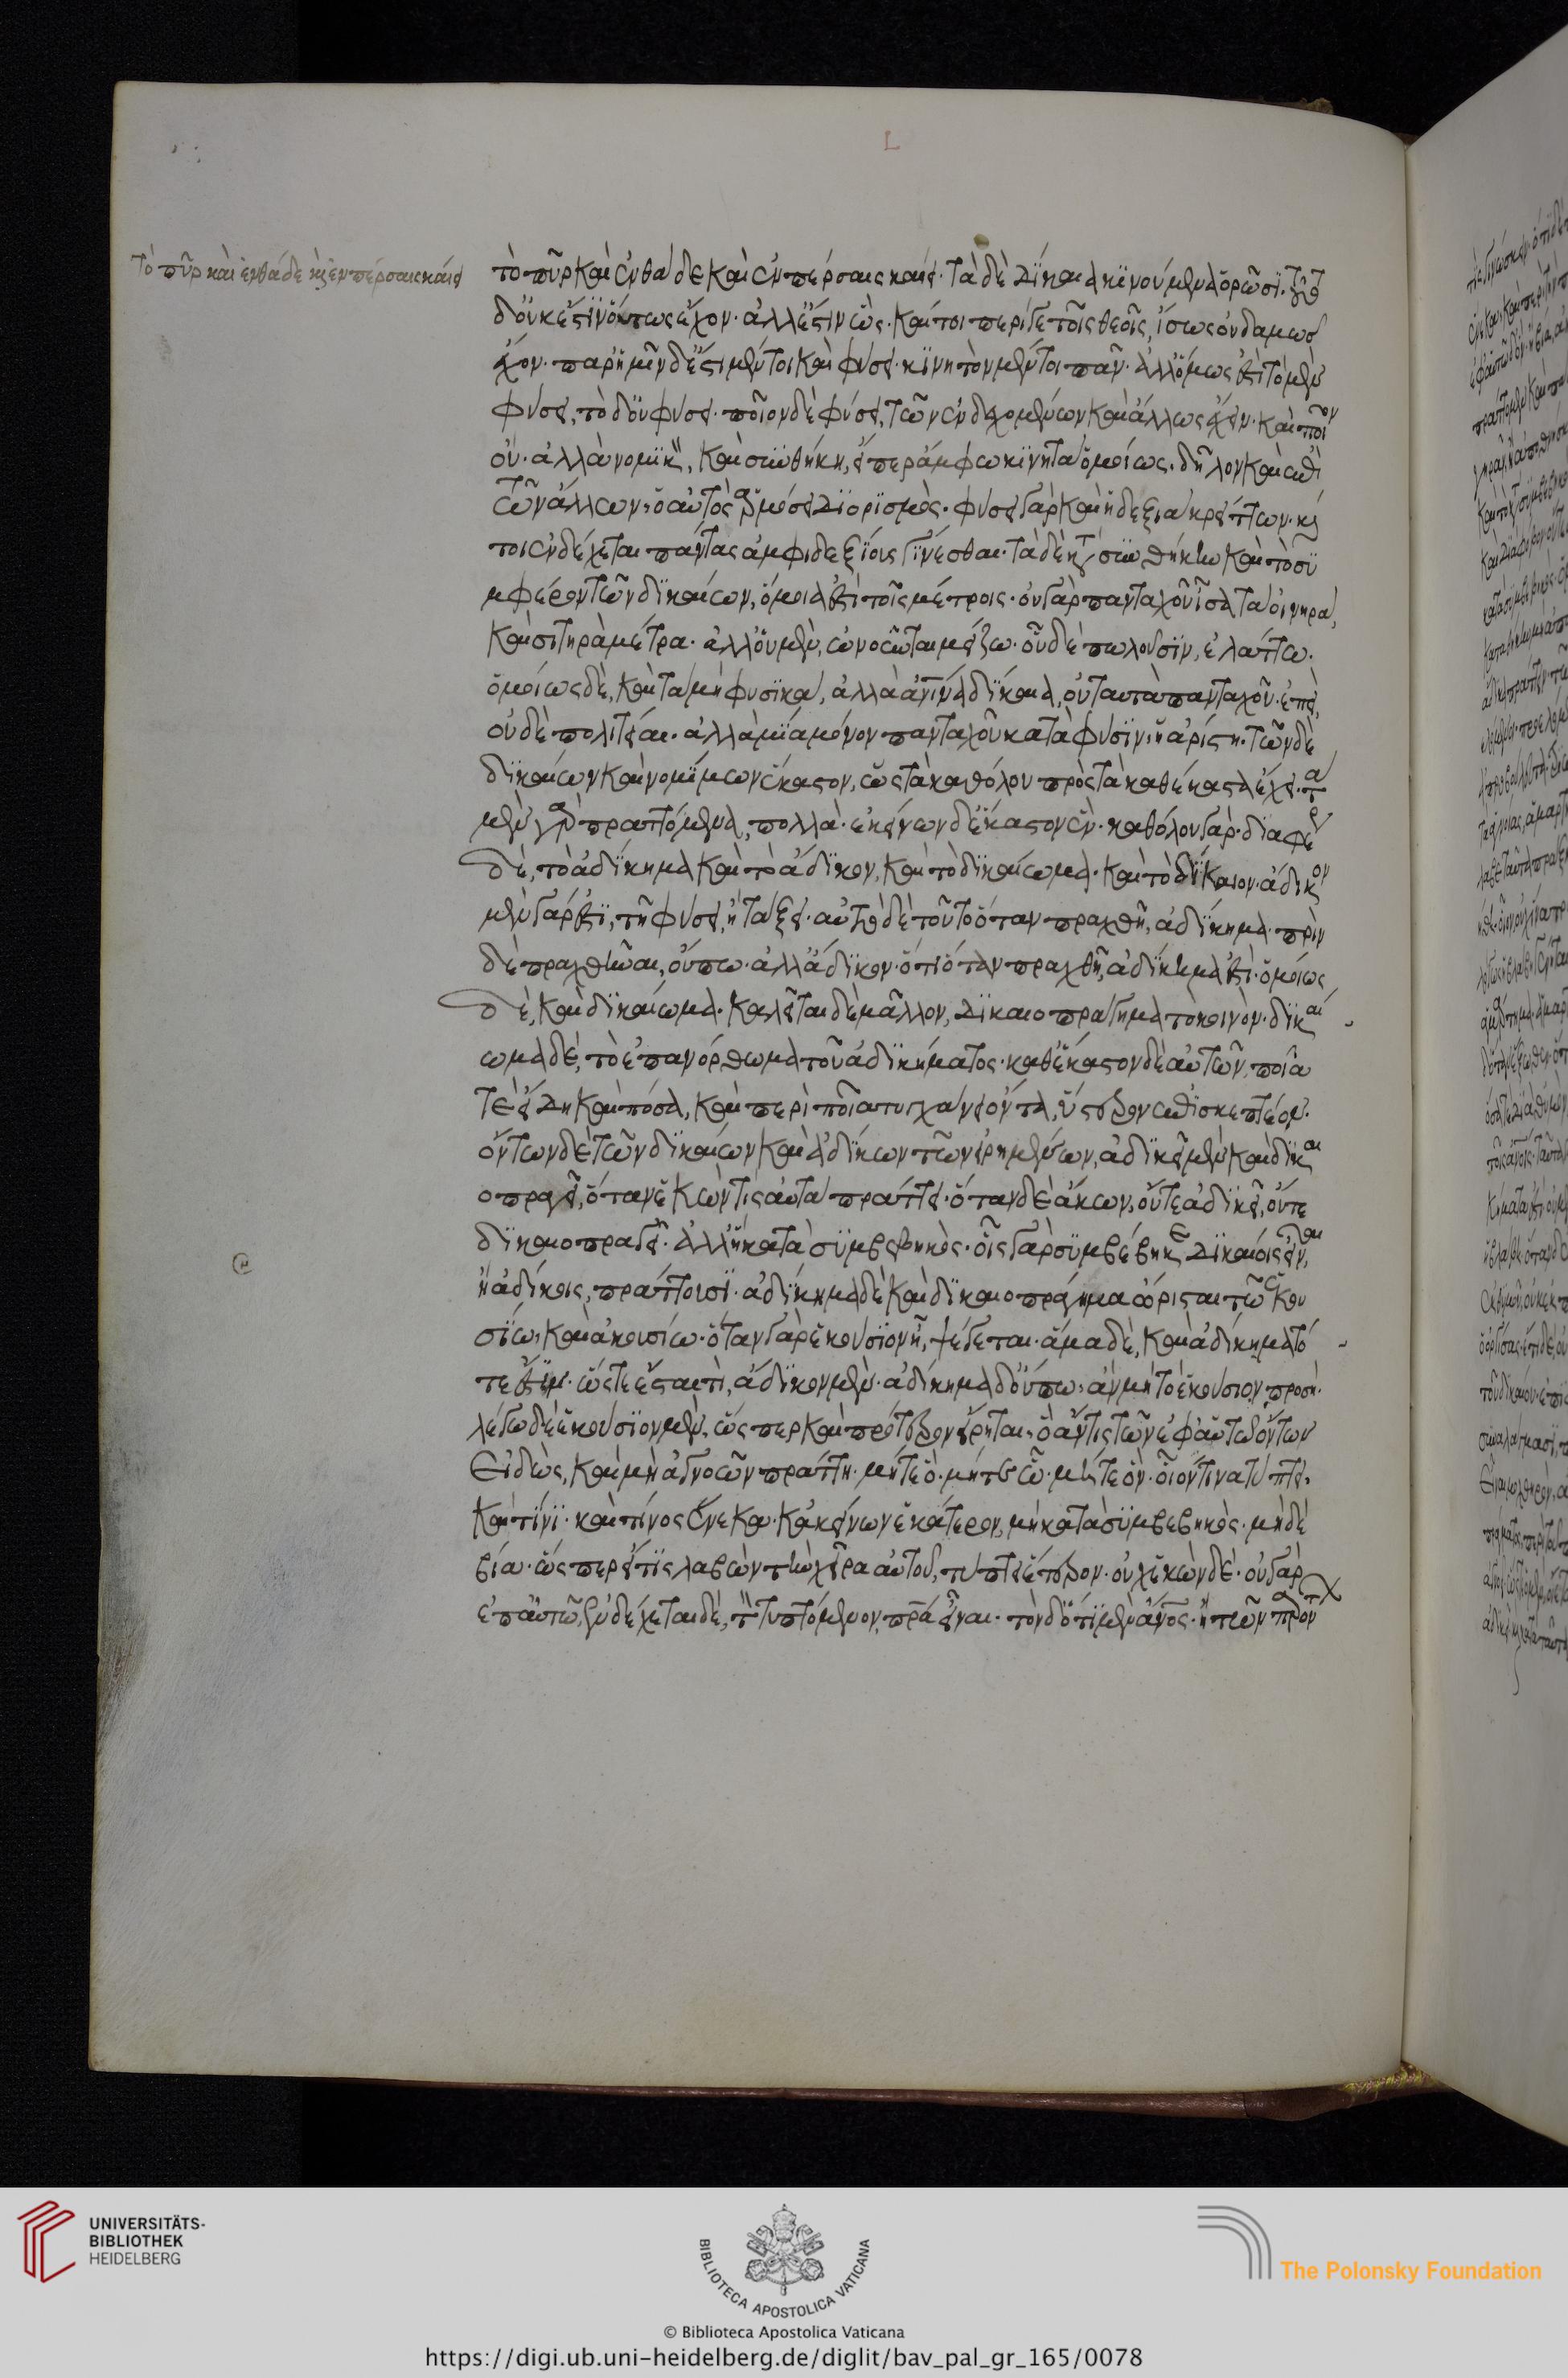 L
Τὸ πῦρ καὶ ἐνθάδε καὶ ἐν πέρσαις καίει
τὸ πῦρ καὶ ἐνθάδε καὶ ἐν πέρσαις καίει· τὰ δὲ δίκαια κινούμενα ὁρῶσι· τοῦτο
δ' οὐκ ἔστιν οὕτως ἔχον· ἀλλ' ἔστιν ὥς· καίτοι περί γε τοῖς θεοῖς, ἴσως οὐδαμῶς
ἔχον· παρ' ἡμῖν δ' ἔστι μέν τι καὶ φύσει· κινητὸν μέντοι πᾶν· ἀλλ' ὅμως ἐστὶ τὸ μὲν
φύσει, τὸ δ' οὐ φύσει· ποῖον δὲ φύσει, τῶν ἐνδεχομένων καὶ ἄλλως ἔχειν· καὶ ποῖον
οὔ· ἀλλὰ νομικῇ, καὶ συνθήκῃ, εἴπερ ἄμφω κινητὰ ὁμοίως· δῆλον καὶ ἐπὶ
τῶν ἄλλων· ὁ αὐτὸς ἁρμόσει διορισμὸς· φύσει γὰρ καὶ ἡ δεξιὰ κρείττων· καί
τοι ἐνδέχεται πάντας ἀμφιδεξίους γίνεσθαι· τὰ δὲ κατὰ συνθήκην καὶ τὸ συ
μφέρον τῶν δικαίων, ὅμοιά ἐστι τοῖς μέτροις· οὐ γὰρ πανταχοῦ ἴσα τὰ οἰνηρὰ,
καὶ σιτηρὰ μέτρα· ἀλλ' οὗ μὲν, ὠνοῦνται μείζω· οὗ δὲ πωλοῦσιν, ἐλάττω·
ὁμοίως δὲ, καὶ τὰ μὴ φυσικὰ, ἀλλὰ ἀνθρώπινα δίκαια, οὐ ταυτὰ πανταχοῦ· ἐπεὶ,
οὐδὲ πολιτεῖαι· ἀλλὰ μία μόνον πανταχοῦ κατὰ φύσιν· ἡ ἀρίστη· τῶν δὲ
δικαίων καὶ νομίμων ἕκαστον, ὡς τὰ καθόλου πρὸς τὰ καθέκαστα ἔχει· τὰ
μὲν γὰρ πραττόμενα, πολλὰ· ἐκείνων δ' ἕκαστον ἕν· καθόλου γάρ· διαφέρει
δὲ, τὸ ἀδίκημα καὶ τὸ ἄδικον, καὶ τὸ δικαίωμα· καὶ τὸ δίκαιον· ἄδικον
μὲν γάρ ἐστι, τῇ φύσει, ἢ τάξει· αὐτὸ δὲ τοῦτο ὅταν πραχθῇ, ἀδίκημα· πρὶν
δὲ πραχθῆναι, οὔπω· ἀλλ' ἄδικον· ὅτι ὅταν πραχθῇ, ἀδίκημά ἐστι· ὁμοίως
δὲ, καὶ δικαίωμα· καλεῖται δὲ μᾶλλον, δικαιοπράγημα τὸ κοινὸν· δικαί
ωμα δὲ, τὸ ἐπανόρθωμα τοῦ ἀδικήματος· καθ' ἕκαστον δὲ αὐτῶν, ποῖα
τὲ εἴδη καὶ πόσα, καὶ περὶ ποῖα τυγχάνει ὄντα, ὕστερον ἐπισκεπτέον·
ὄντων δὲ τῶν δικαίων καὶ ἀδίκων τῶν εἰρημένων, ἀδικεῖ μὲν καὶ δικαι
οπραγεῖ, ὅταν ἑκών τις αὐτὰ πράττει· ὅταν δὲ ἄκων, οὔτε ἀδικεῖ, οὔτε
δικαιοπραγεῖ· ἀλλ' ἢ κατὰ συμβεβηκός· οἷς γὰρ συμβέβηκε δικαίοις εἶναι,
ἢ ἀδίκοις, πράττουσι· ἀδίκημα δὲ καὶ δικαιοπράγημα ὥρισται τῷ ἑκου
σίω· καὶ ἀκουσίω· ὅταν γὰρ ἑκούσιον ᾖ, ψέγεται· ἅμα δὲ, καὶ ἀδίκημα τό
τε ἐστίν· ὥστε ἔσται τι, ἄδικον μὲν· ἀδίκημα δ' οὔπω· ἂν μὴ τὸ ἑκούσιον προσῇ·
λέγω δὲ ἑκούσιον μὲν, ὥσπερ καὶ πρότερον εἴρηται· ὃ ἄν τις τῶν ἐφ' αὑτῷ ὄντων
Εἰδὼς, καὶ μὴ ἀγνοῶν πράττῃ· μήτε ὃ· μήτε ὧ· μήτε ὃν· οἷον τίνα τύπτει,
καὶ τίνι· καὶ τίνος ἕνεκα· κἀκείνων ἑκάτερον, μὴ κατὰ συμβεβηκός· μὴδὲ
βία· ὥσπερ εἴ τις λαβὼν τὴν χεῖρα αὐτοῦ, τύπτει ἕτερον· οὐχ ἑκὼν δὲ· οὐ γὰρ
ἐπ' αὐτῶ, ἐνδέχεται δὲ, τὸν τυπτόμενον, πρα εἶναι· τὸν δ' ὅτι μὲν ἄνος· ἢ τῶν παρόντ
UNIVERSITÄTS-
BIBLIOTHEK
HEIDELBERG
BIBLIOTECA APOSTOLICA VATICANA
The Polonsky Foundation
© Biblioteca Apostolica Vaticana
https://digi.ub.uni-heidelberg.de/diglit/bav_pal_gr_165/0078